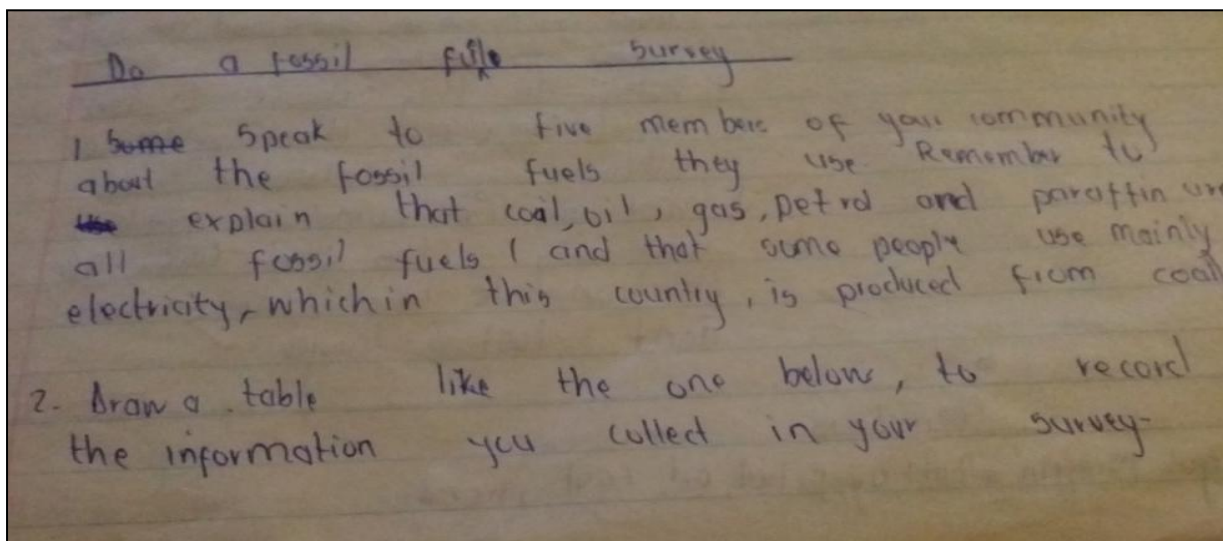 Do a fossil fule survey
1 Some Speak to five members of your community
about the fossil fuels they use Remember to
explain that coal, oil, gas, petrol and paraffin are
all fossil fuels ( and that some people use mainly
electricity, which in this country, is produced from coal
2. Draw a table like the one below, to record
the information you collect in your survey-